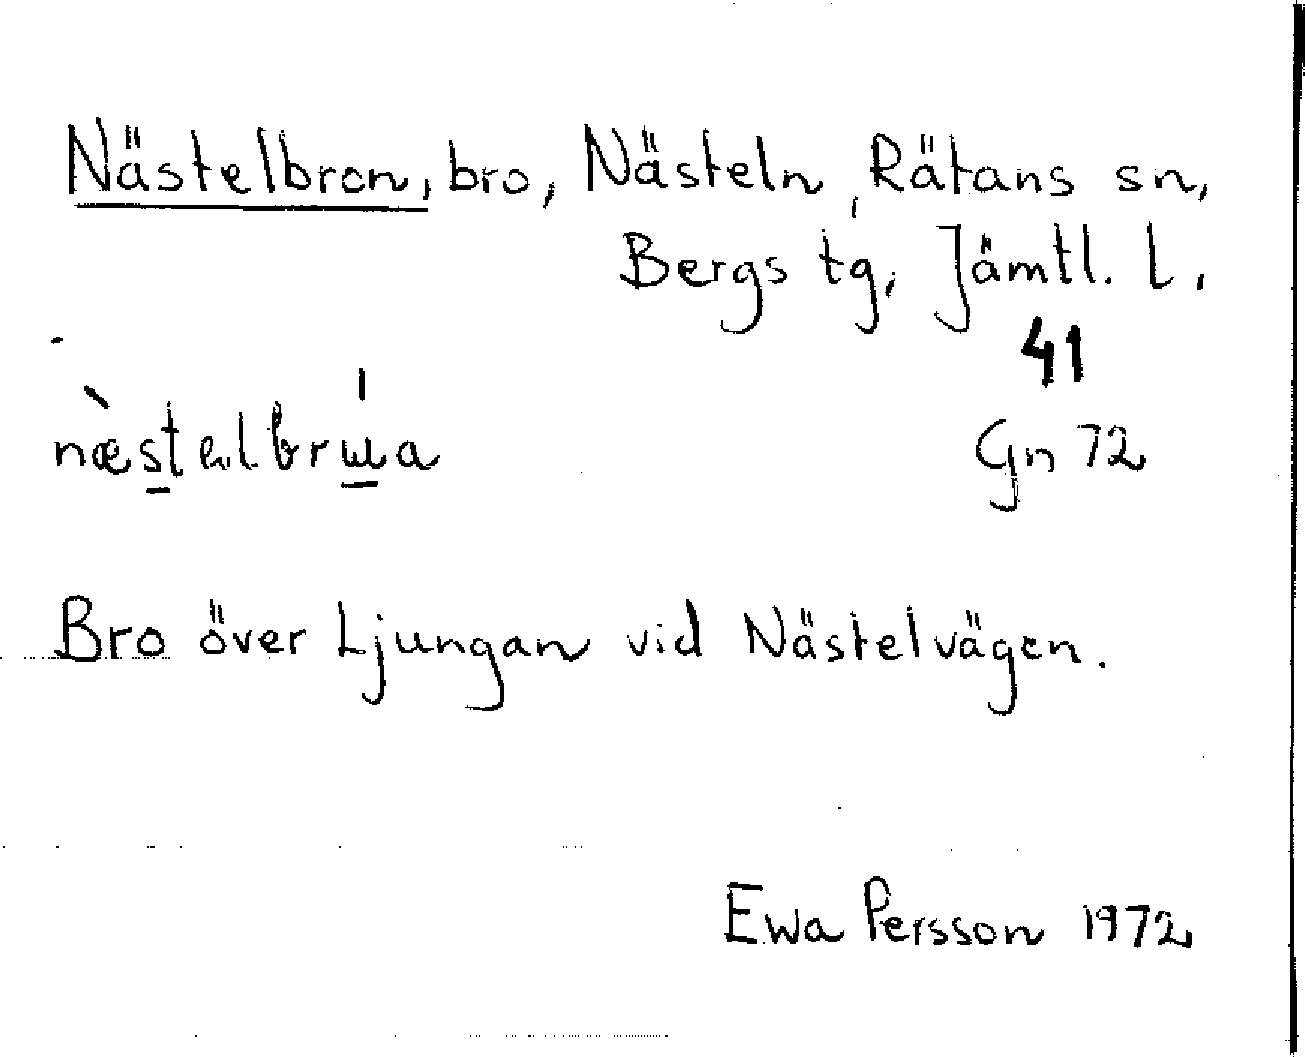 Nästelbron, bro, Nästeln, Rätans sn,
Bergs tg, Jämtl. l.
41
Gn 72
Bro över Ljungan vid Nästelvägen.
Ewa Persson 1972